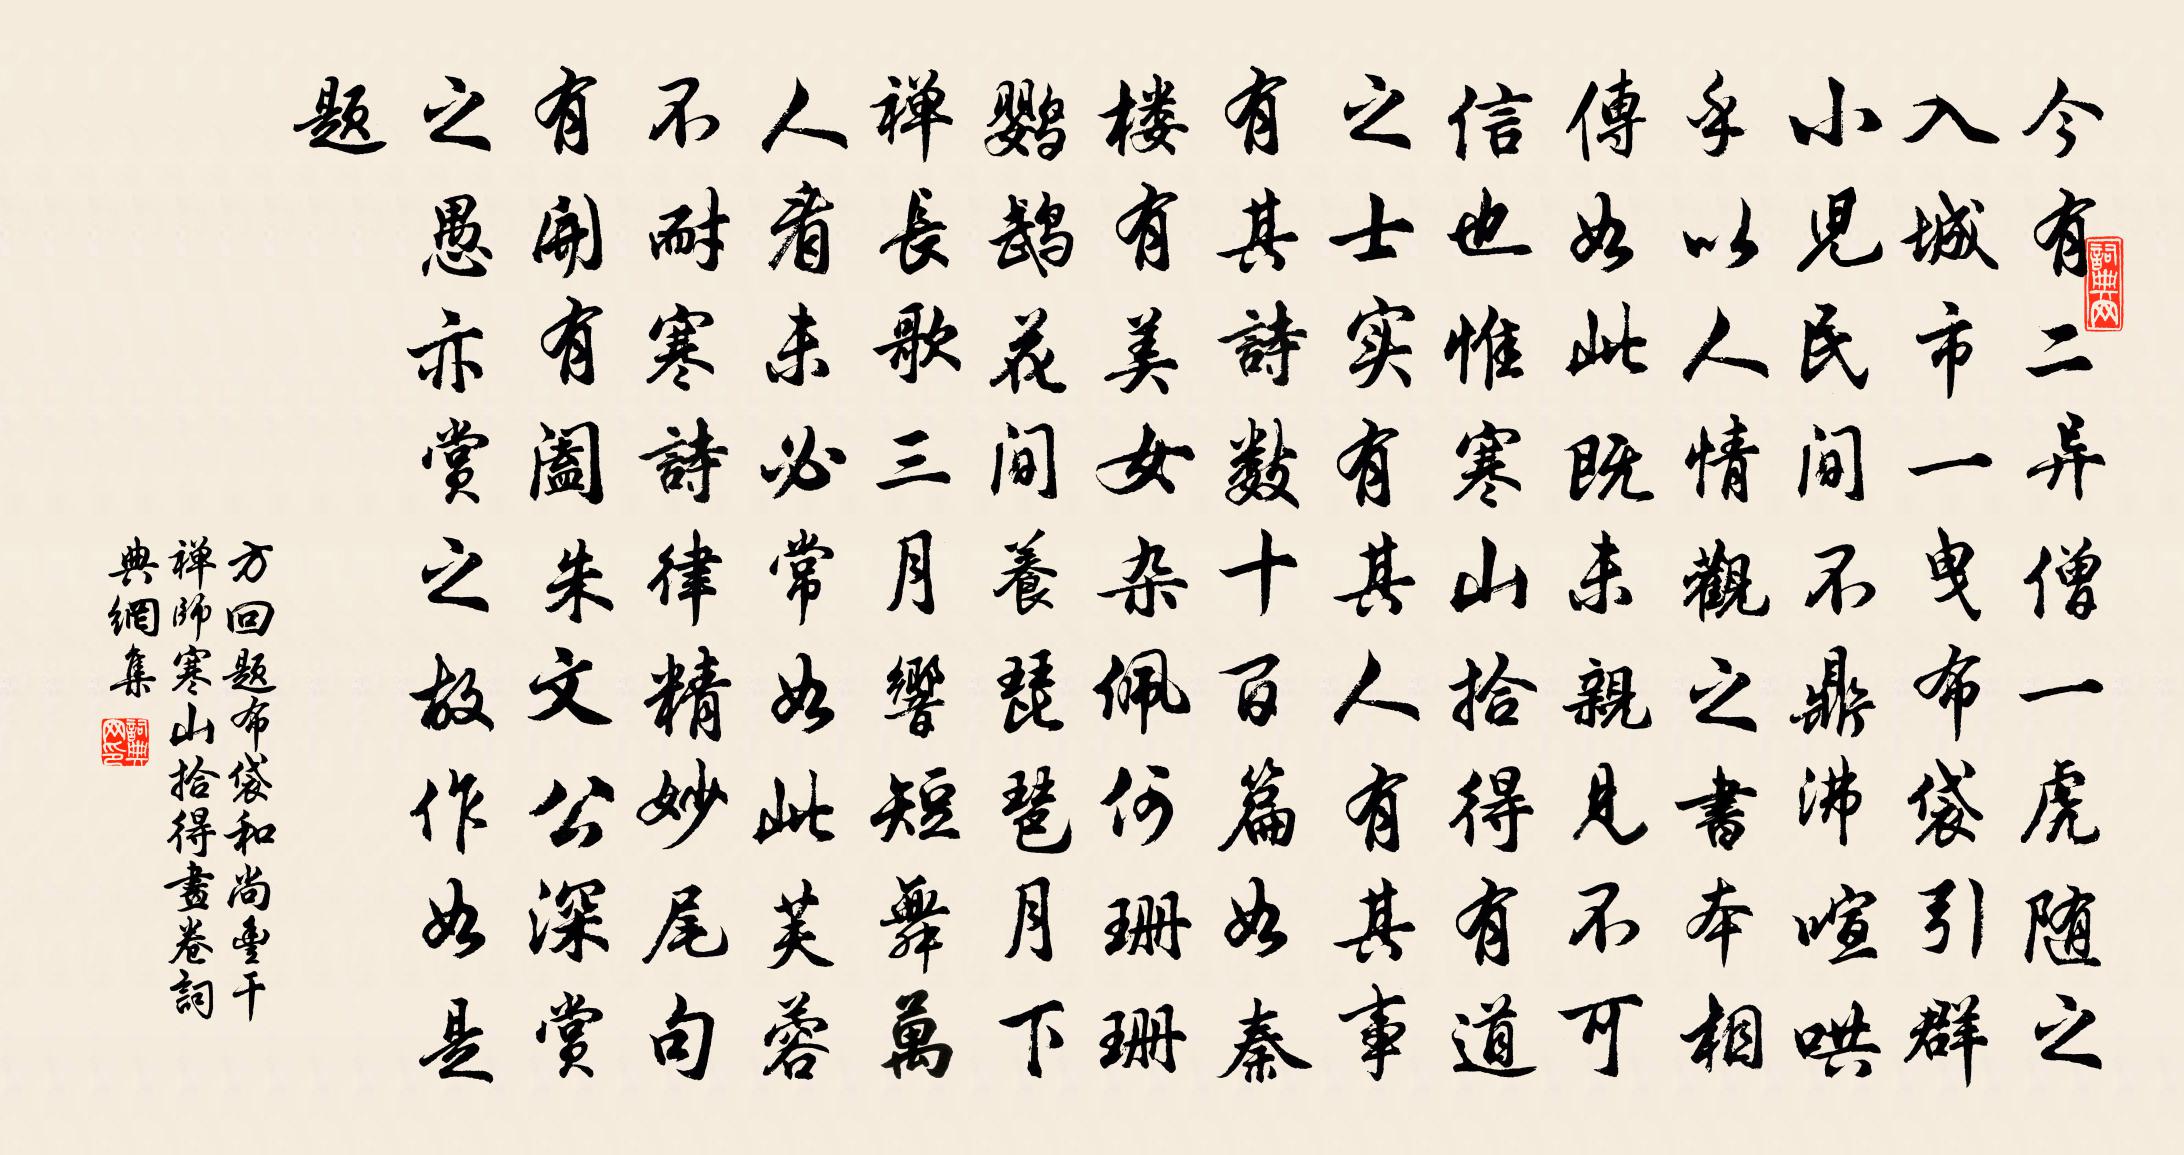 今有二异僧一虎随之
入城市一曳布袋引群
小児民间不鼎沸喧哄
乎以人情觀之書本相
傳如此既未親見不可
信也惟寒山拾得有道
之士实有其人有其事
有其詩数十百篇如秦
楼有美女杂佩何珊珊
鹦鹉花间養琵琶月下
禅長歌三月響短舞萬
人看未必常如此芙蓉
不耐寒詩律精妙尾句
有開有阖朱文公深賞
之愚亦赏之故作如是
题
方回题布袋和尚豊干
禅師寒山拾得畫卷詞
典網集
詞典网
詞典网印